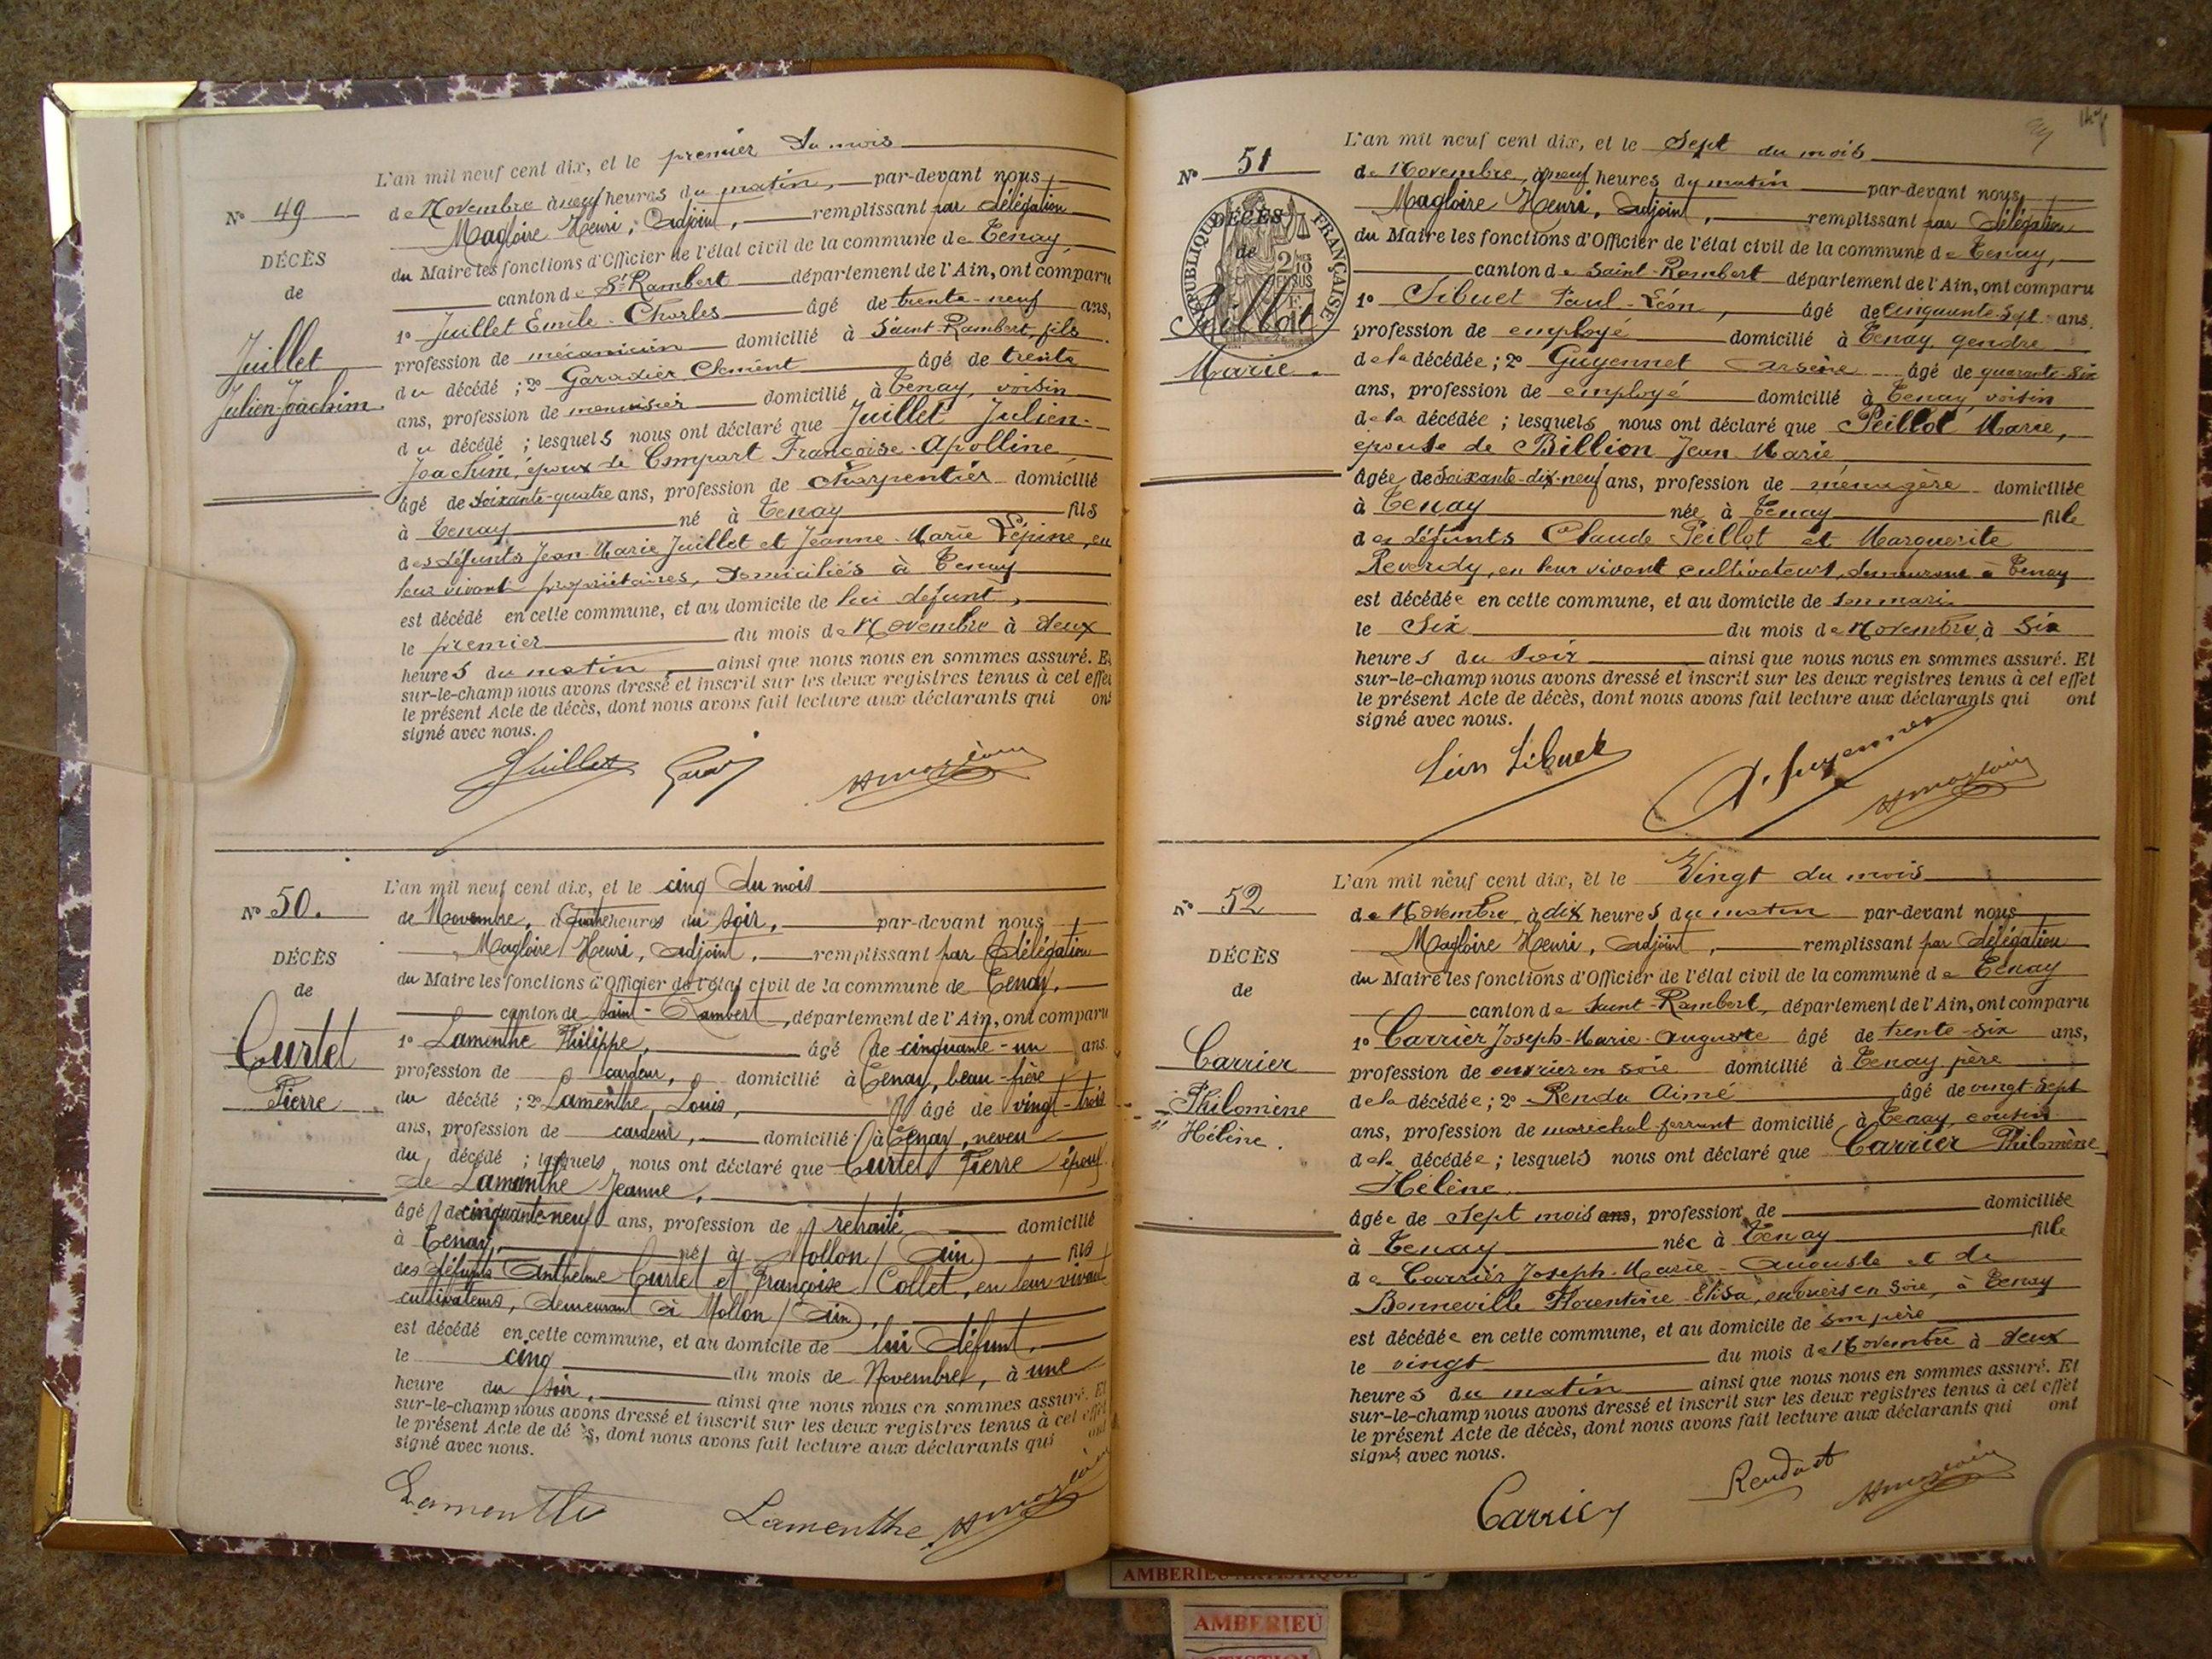 L'an mil neuf cent dix, et le premier du mois
de Novembre à neuf heures du matin, par-devant nous
Magloire Henri, adjoint, remplissant par délégation
du Maire les fonctions d'Officier de l'état civil de la commune de Tenay,
canton de St Rambert département de l'Ain, ont comparu
1º Juillet Emile-Charles âgé de trente-neuf ans,
profession de mécanicien domicilié à Saint-Rambert, fils
du décédé ; 2º Garadier Clément âgé de trente
ans, profession de menuisier domicilié à Tenay, voisin
du décédé ; lesquels nous ont déclaré que Juillet Julien-
Joachim, époux de Compart Françoise-Apolline
âgé de soixante-quatre ans, profession de charpentier domicilié
à Tenay né à Tenay fils
des défunts Jean-Marie Juillet et Jeanne-Marie Lépine, en
leur vivant propriétaires, domiciliés à Tenay
est décédé en cette commune, et au domicile de lui défunt,
le premier du mois de Novembre à deux
heures du matin, ainsi que nous nous en sommes assuré. Et
sur-le-champ nous avons dressé et inscrit sur les deux registres tenus à cet effet
le présent Acte de décès, dont nous avons fait lecture aux déclarants qui ont
signé avec nous.
Juillet
Nº 49
DÉCÈS
de
Juillet
Julien-Joachim.
L'an mil neuf cent dix, et le cinq du mois
de Novembre, à quatre heures du soir, par-devant nous
Magloire Henri, adjoint, remplissant par délégation
du Maire les fonctions d'Officier de l'état civil de la commune de Tenay,
canton de Saint-Rambert, département de l'Ain, ont comparu
1º Lamenthe Philippe, âgé de cinquante-un ans
profession de cardeur, domicilié à Tenay, beau-frère
du décédé ; 2º Lamenthe, Louis, âgé de vingt-trois
ans, profession de cardeur, domicilié à Tenay, neveu
du décédé ; lesquels nous ont déclaré que Curtet Pierre époux
de Lamenthe Jeanne,
âgé de cinquante-neuf ans, profession de retraité domicilié
à Tenay, né à Mollon (Ain) fils
des défunts Anthelme Curtet et Françoise Collet, en leur vivant
cultivateurs, demeurant à Mollon (Ain),
est décédé en cette commune, et au domicile de lui défunt,
le cinq du mois de Novembre, à une
heure du soir, ainsi que nous nous en sommes assuré. Et
sur-le-champ nous avons dressé et inscrit sur les deux registres tenus à cet effet
le présent Acte de décès, dont nous avons fait lecture aux déclarants qui ont
signé avec nous.
Lamenthe Lamenthe
Nº 50.
DÉCÈS
de
Curtet
Pierre
L'an mil neuf cent dix, et le Sept du mois
de Novembre, à neuf heures du matin par-devant nous
Magloire Henri, adjoint, remplissant par délégation
du Maire les fonctions d'Officier de l'état civil de la commune de Tenay,
canton de Saint-Rambert département de l'Ain, ont comparu
1º Sibuet Paul-Léon, âgé de cinquante-sept ans,
profession de employé domicilié à Tenay, gendre
de la décédée ; 2º Guyennet Arsène âgé de quarante-six
ans, profession de employé domicilié à Tenay, voisin
de la décédée ; lesquels nous ont déclaré que Peillot Marie,
épouse de Billion Jean-Marie
âgée de soixante-dix-neuf ans, profession de ménagère domiciliée
à Tenay née à Tenay fille
des défunts Claude Peillot et Marguerite
Reverdy, en leur vivant cultivateurs, demeurant à Tenay
est décédée en cette commune, et au domicile de son mari
le Six du mois de Novembre, à Six
heures du soir ainsi que nous nous en sommes assuré. Et
sur-le-champ nous avons dressé et inscrit sur les deux registres tenus à cet effet
le présent Acte de décès, dont nous avons fait lecture aux déclarants qui ont
signé avec nous.
Léon Sibuet A. Guyennet
Nº 51
DÉCÈS
de
Peillot
Marie.
RÉPUBLIQUE FRANÇAISE
L'an mil neuf cent dix, et le Vingt du mois
de Novembre à dix heures du matin par-devant nous
Magloire Henri, adjoint, remplissant par délégation
du Maire les fonctions d'Officier de l'état civil de la commune de Tenay
canton de Saint-Rambert, département de l'Ain, ont comparu
1º Carrier Joseph-Marie-Auguste âgé de trente-six ans,
profession de ouvrier en soie domicilié à Tenay père
de la décédée ; 2º Rendu Aimé âgé de vingt-sept
ans, profession de maréchal-ferrant domicilié à Tenay, cousin
de la décédée ; lesquels nous ont déclaré que Carrier Philomène
Hélène
âgée de Sept mois ans, profession de domiciliée
à Tenay née à Tenay fille
de Carrier Joseph-Marie-Auguste et de
Bonneville Florentine-Elisa, ouvriers en soie, à Tenay
est décédée en cette commune, et au domicile de son père
le vingt du mois de Novembre à deux
heures du matin ainsi que nous nous en sommes assuré. Et
sur-le-champ nous avons dressé et inscrit sur les deux registres tenus à cet effet
le présent Acte de décès, dont nous avons fait lecture aux déclarants qui ont
signé avec nous.
Carrier
Nº 52
DÉCÈS
de
Carrier
Philomène
Hélène.
AMBERIEU ARTISTIQUE
AMBERIEU